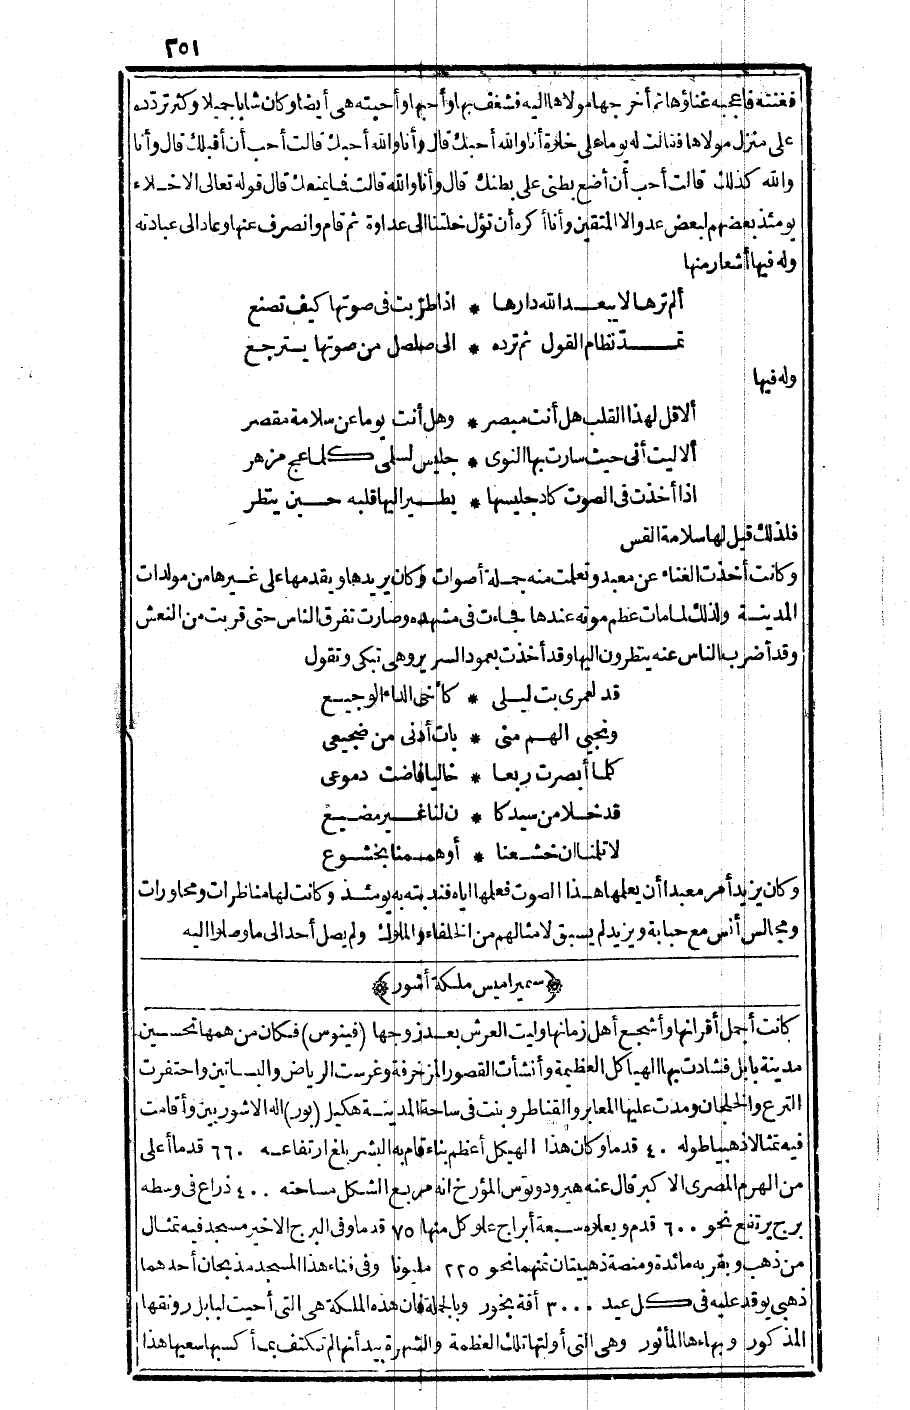 ٢٥١
فغنته فاعجبه غناؤها ثم أخرجها مولاها اليه فشغف بها وأحبها وأحبته هى أيضا وكان شابا جميلا وكثر تردّده
على منزل مولاها فقالت له يوما على خلاة أنا والله أحبك قال وأنا والله أحبك قالت أحب أن أقبلك قال وأنا
والله كذلك قالت أحب أن أضع بطنى على بطنك قال وأنا والله قالت فما يمنعك قال قوله تعالى الاخلاء
يومئذ بعضهم لبعض عدو الا المتقين وأنا أكره أن تؤل خلتنا الى عداوة ثم قام وانصرف عنها وعاد الى عبادته
وله فيها أشعار منها
ألم ترها لا يبعد الله دارها * اذا طرّبت فى صوتها كيف تصنع
تمدّ نظام القول ثم ترده * الى صلصل من صوتها يسترجع
وله فيها
ألا قل لهذا القلب هل أنت مبصر * وهل أنت يوما عن سلامة مقصر
ألا ليت أنى حيث سارت بها النوى * جليس لسلمى كلما عج مزهر
اذا أخذت فى الصوت كاد جليسها * يطير اليها قلبه حين ينظر
فلذلك قيل لها سلامة القس
وكانت أخذت الغناء عن معبد وتعلمت منه جملة أصوات وكان يريدها ويقدمها على غيرها من مولدات
المدينة ولذلك لما مات عظم موته عندها فجاءت فى مشهده وصارت تفرق الناس حتى قربت من النعش
وقد أضرب الناس عنه ينتظرون اليها وقد أخذت بعمود السرير وهى تبكى وتقول
قد لعمرى بت ليلى * كأخى الداء الوجيع
ونجىّ الهم منى * بات أدنى من ضجيعى
كلما أبصرت ربعا * خاليا فاضت دموعى
قد خلا من سيد كا * ن لنا غير مضيع
لا تلمنا ان خشعنا * أو هممنا بخشوع
وكان يزيد أمر معبدا أن يعلمها هذا الصوت فعلمها اياه فندبته به يومئذ وكانت لها مناظرات ومحاورات
ومجالس أنس مع حبابة ويزيد لم يسبق لامثالهم من الخلفاء والملوك ولم يصل أحد الى ما وصلوا اليه
﴿سميراميس ملكة أشور﴾
كانت أجمل أقرانها وأشجع أهل زمانها وليت العرش بعد زوجها (فينوس) فكان من همها تحسين
مدينة بابل فشادت بها الهياكل العظيمة وأنشأت القصور المزخرفة وغرست الرياض والبساتين واحتفرت
الترع والخلجان ومدت عليها المعابر والقناطر وبنت فى ساحة المدينة هكيل (بور) اله الاشوريين وأقامت
فيه تمثالا ذهبيا طوله ٤٠ قدما وكان هذا الهيكل أعظم بناء قام به البشر بلغ ارتفاعه ٦٦٠ قدما أعلى
من الهرم المصرى الاكبر قال عنه هيرودوتوس المؤرخ انه مربع الشكل مساحته ٤٠٠ ذراع فى وسطه
برج يرتفع نحو ٦٠٠ قدم ويعلوه سبعة أبراج علو كل منها ٧٥ قدما وفى البرج الاخير مسجد فيه تمثال
من ذهب وبقربه مائدة ومنصة ذهبيتان ثمنهما نحو ٢٢٥ مليونا وفى فناء هذا المسجد مذبحان أحدهما
ذهبى يوقد عليه فى كل عيد ٣٠٠٠ أقة بخور وبالجملة فان هذه الملكة هى التى أحيت لبابل رونقها
المذكور وبهاءها المأثور وهى التى أولتها تلك العظمة والشهرة بيد أنها لم تكتف بما أكسبها سعيها هذا